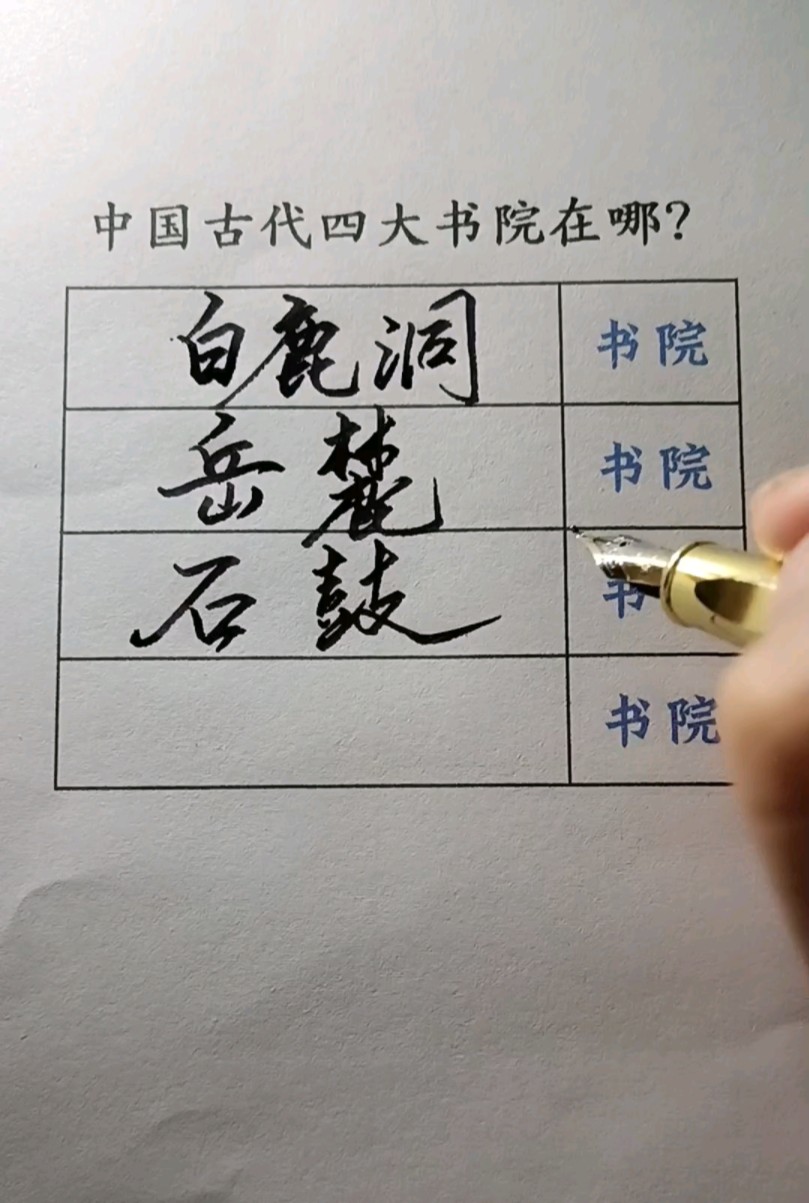 中国古代四大书院在哪?
白鹿洞 书院
岳麓 书院
石鼓 书
书院